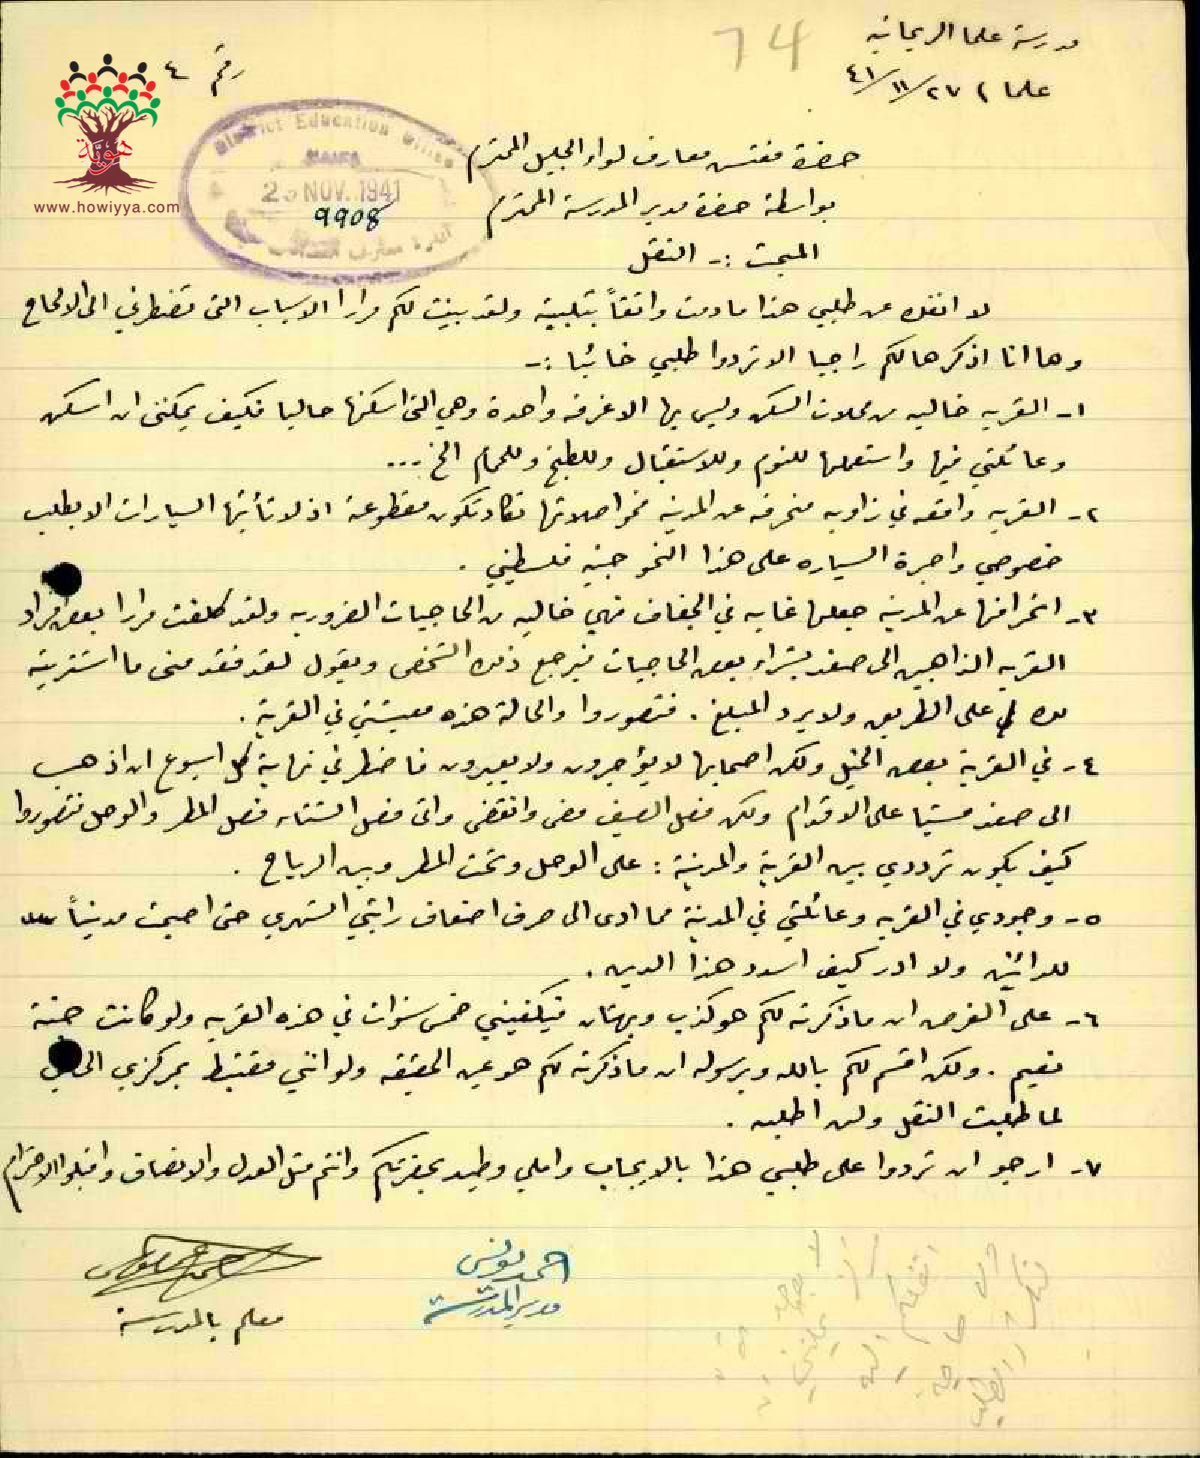 مدرسة علما الريحانيه
علما ٢٧/١١/٤١
رقم ٤
74
هويّة
www.howiyya.com
District Education Office
HAIFA
NOV. 1941
9908
حضرة مفتش معارف لواء الجليل المحترم
بواسطة حضرة مدير المدرسة المحترم
المبحث :- النقل
لا انفك عن طلبي هذا ما دمت واثقاً بتلبيته ولقد بينت لكم مرارا الاسباب التي تضطرني الى الالحاح
وها انا اذكرها لكم راجيا الا تردوا طلبي خائبا :-
١- القريه خاليه من محلات السكن وليس بها الا غرفه واحدة وهي التي اسكنها حاليا فكيف يمكنني ان اسكن
وعائلتي فيها واستعملها للنوم وللاستقبال وللطبخ وللحمام الخ ...
٢- القريه واقعه في زاويه منحرفه عن المدينه فمواصلاتها تكاد تكون مقطوعة اذ لا تأتيها السيارات الا بطلب
خصوصي واجرة السياره على هذا النحو جنيه فلسطيني .
٣- انحرافها عن المدينه جعلها غايه في الجفاف فهي خاليه من الحاجيات الضروريه ولقد كلفت مرارا بعض افراد
القريه الذاهبين الى صفد بشراء بعض الحاجيات فيرجع ذلك الشخص ويقول لقد فقد مني ما اشتريته
لك على الطريق ولا يرد المبلغ . فتصوروا والحالة هذه معيشتي في القرية .
٤- في القرية بعض الخيل ولكن اصحابها لا يؤجرون ولا يعيرون فاضطر في نهاية كل اسبوع ان اذهب
الى صفد مشيا على الاقدام ولكن فصل الصيف مضى وانقضى واتى فصل الشتاء فصل المطر والوحل فتصوروا
كيف يكون ترددي بين القرية والمدينة : على الوحل وتحت المطر وبين الرياح .
٥- وجودي في القريه وعائلتي في المدينة مما ادى الى صرف اضعاف راتبي الشهري حتى اصبحت مديناً
للدائنين ولا ادر كيف اسدد هذا الدين .
٦- على الفرض ان ما ذكرته لكم هو كذب وبهتان فيكفيني خمس سنوات في هذه القريه ولو كانت جنة
نعيم . ولكن اقسم لكم بالله وبرسوله ان ما ذكرته لكم هو عين الحقيقه ولو انني مغتبط بمركزي الحالي
لما طلبت النقل ولن اطلبه .
٧- ارجو ان تردوا على طلبي هذا بالايجاب واملي وطيد بحضرتكم وانتم مثل العدل والانصاف واقبلوا الاحترام
احمد يونس
مدير المدرسة
معلم بالمدرسة